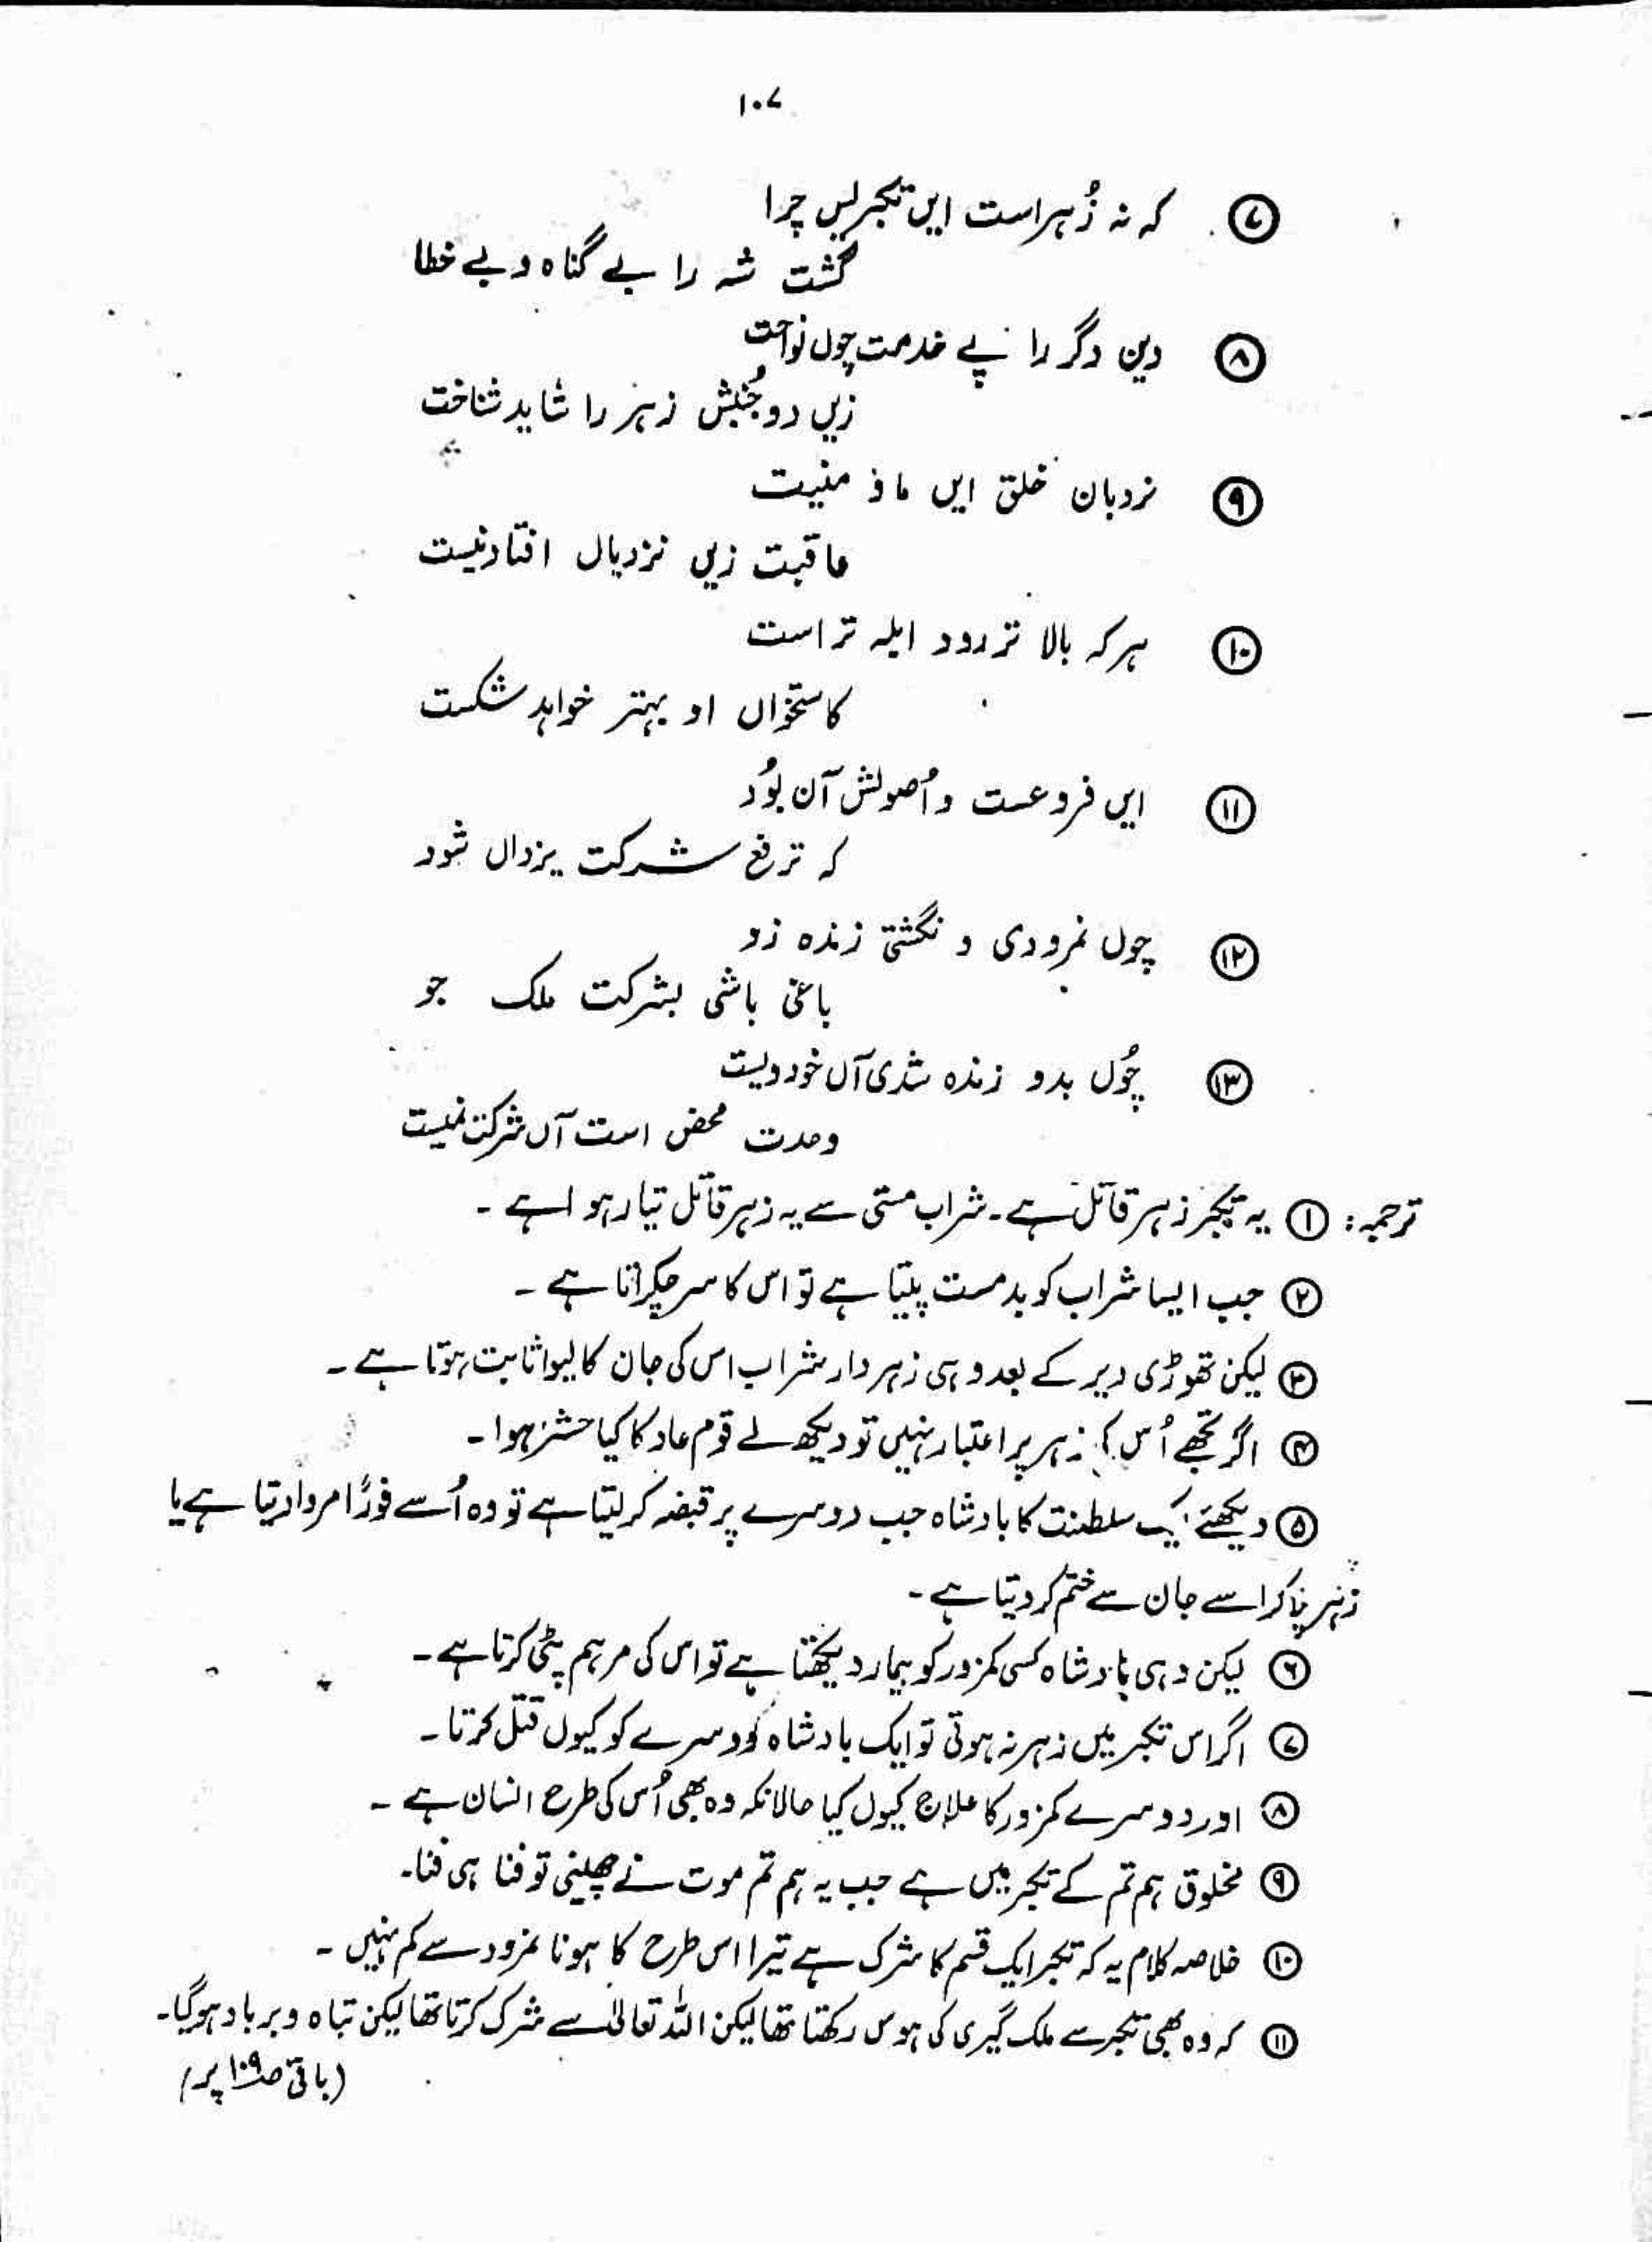 ۱۰۷
⑦ کہ نہ زُہراست ایں تکبر لیں چرا
کُشت شہ را بے گناہ و بے خطا
⑧ دین دگر را پے خدمت چوں نواخت
زیں دو جُنبش زہر را شاید شناخت
⑨ نردبان خلق ایں ماو منیت
عاقبت زیں نزدیال افتادنیست
⑩ ہر کہ بالا تر رود ابلہ تر است
کاستخواں او بہتر خواہد شکست
⑪ ایں فروعست و اُصولش آن بوُد
کہ ترفع شرکت یزداں شود
⑫ چوں نمرودی و نگشتی زندہ زو
باغی باشی بشرکت ملک جو
⑬ چُوں بدو زندہ شدی آں خود ویست
وحدت محض است آں شرکت نیست
ترجمہ: ① یہ تکبر زہر قاتل ہے۔ شراب مستی سے یہ زہر قاتل تیار ہوا ہے ۔
② جب ایسا شراب کو بدمست پیتا ہے تو اس کا سر چکراتا ہے ۔
③ لیکن تھوڑی دیر کے بعد وہی زہر دار شراب اس کی جان کا لیوا ثابت ہوتا ہے ۔
④ اگر تجھے اُس کے زہر پر اعتبار نہیں تو دیکھ لے قوم عاد کا کیا حشر ہوا ۔
⑤ دیکھئے ایک سلطنت کا بادشاہ جب دوسرے پر قبضہ کر لیتا ہے تو وہ اُسے فورًا مروا دیتا ہے یا
زہر پلا کر اسے جان سے ختم کر دیتا ہے ۔
⑥ لیکن وہی بادشاہ کسی کمزور کو بیمار دیکھتا ہے تو اس کی مرہم پٹی کرتا ہے ۔
⑦ اگر اس تکبر میں زہر نہ ہوتی تو ایک بادشاہ دوسرے کو کیوں قتل کرتا ۔
⑧ اور دوسرے کمزور کا علاج کیوں کیا حالانکہ وہ بھی اُس کی طرح انسان ہے ۔
⑨ مخلوق ہم تم کے تکبر میں ہے جب یہ ہم تم موت نے چھینی تو فنا ہی فنا۔
⑩ خلاصہ کلام یہ کہ تکبر ایک قسم کا شرک ہے تیرا اس طرح کا ہونا نمرود سے کم نہیں ۔
⑪ کہ وہ بھی تکبر سے ملک گیری کی ہوس رکھتا تھا لیکن اللہ تعالیٰ سے شرک کرتا تھا لیکن تباہ و برباد ہو گیا۔
(باقی صـ۱۰۹ پر)